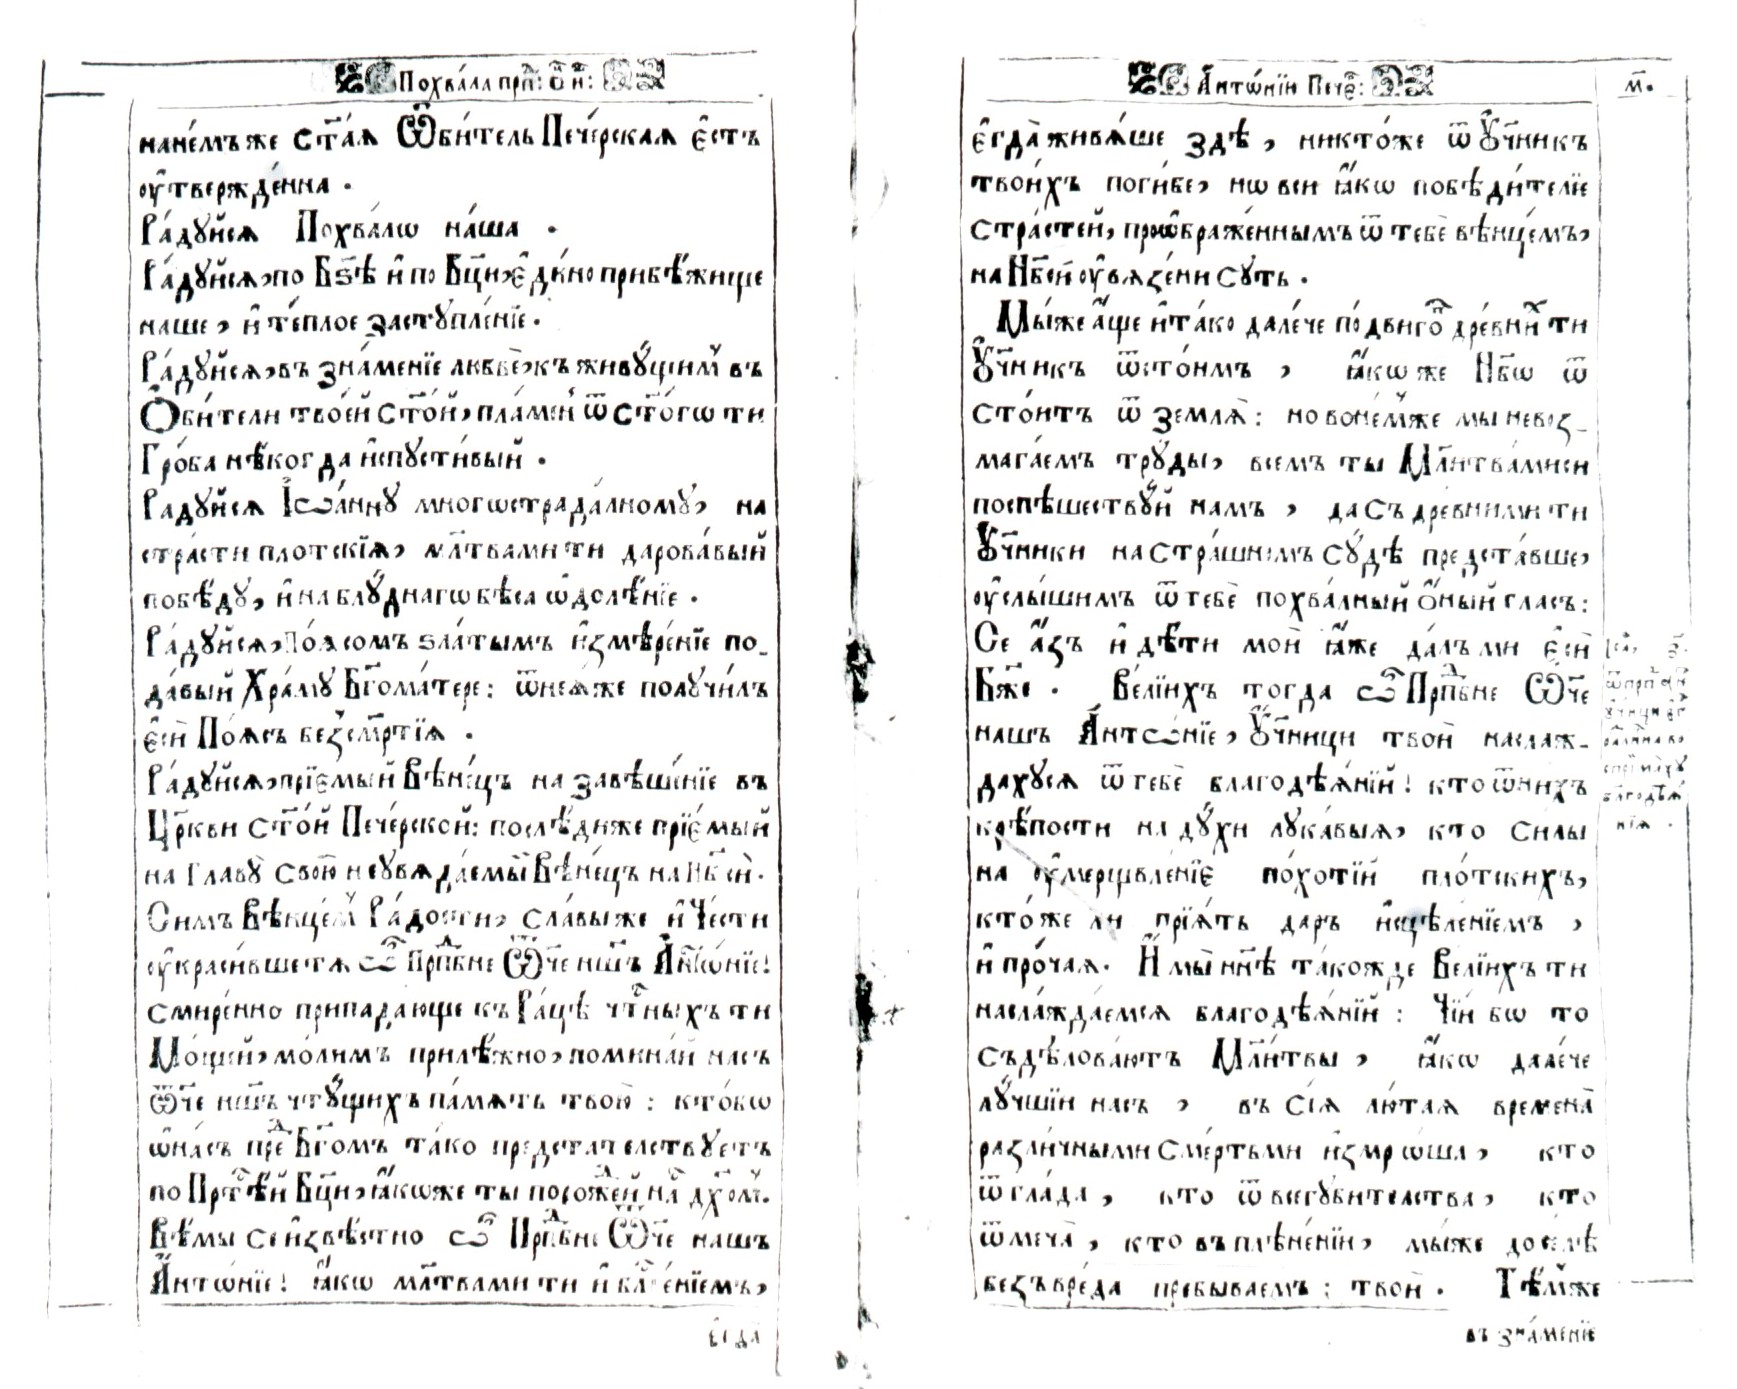 Похва́ла прпⷣ: Ѻ҆ⷮц҃ꙋ н҃:
нане́мъ же ст҃а́ѧ Ѡ҆би́тель Пече́рскаѧ є҆стъ
оу҆твержде́нна .
Ра́дꙋйсѧ Похва́ло на́ша .
Ра́дꙋйсѧ, по Бз҃ѣ и҆ по Бц҃и, є҆ди́но прибѣ́жище
наше, и҆ те́плое застꙋпле́нїе.
Ра́дꙋйсѧ, въ зна́менїе любвѐ, къ живꙋ́щимъ въ
Ѻ҆би́тели твое́й ст҃о́й, пла́мень ѿ ст҃о́гѡ ти
Гро́ба нѣ́когда и҆спꙋсти́вый .
Радꙋйсѧ Іѡа́ннꙋ многѡстрада́лномꙋ, на
стра́сти плотскїѧ, мл҃твами ти дарова́вый
побѣ́дꙋ, и҆ на блꙋ́днагѡ бѣса ѡ҆долѣ́нїе .
Ра́дꙋйсѧ, По́ѧсомъ ѕла́тымъ и҆змѣре́нїе по-
да́вый Хра́мꙋ Бг҃ома́тере: ѿнеѧ́же полꙋчи́лъ
є҆сѝ По́ѧсъ безсм҃ртїѧ .
Ра́дꙋйсѧ, прїе́мый Вѣне́цъ на завѣще́нїе въ
Цр҃кви ст҃о́й Пече́рской: послѣ́ди же прїе́мый
на Главꙋ̀ свою̀ неꙋвѧда́емый Вѣне́цъ на Нб҃сѝ.
Симъ Вѣнце́мъ Ра́дости, сла́вы же и҆ Че́сти
оу҆краси́вшетѧ ѽ Прпⷣбне Ѿч҃е нш҃ъ А҆нтѡ́нїе!
смире́нно припа́дающе къ Ра́цѣ чⷭ҇тныхъ ти
Мо́щей, мо́лимъ прилѣ́жно, помина́й насъ
Ѿч҃е нш҃ъ чтꙋ́щихъ па́мѧть твою̀: кто́ бѡ
ѡ҆ на́съ преⷣ Бг҃омъ та́ко предстателствꙋетъ
по Прⷭ҇тѣй Бц҃и, ꙗ҆́коже ты порожде́й на́съ дх҃омъ.
Вѣ́мы се и҆звѣ́стно ѽ Прпⷣбне Ѿч҃е нашъ
А҆нтѡ́нїе! ꙗ҆́кѡ мл҃твами ти и҆ блⷭ҇ве́нїемъ,
є҆гда̀
А҆нтѡ́нїи Печеⷬ:
м҃.
є҆гда̀ живѧ́ше здѣ̀, никто́же ѿ Оу҆ч҃никъ
твои́хъ поги́бе, но вси ꙗ҆́кѡ побѣди́телїе
стра́стей, преѡ҆браже́ннымъ ѿ тебѐ вѣнце́мъ,
на Нб҃сѝ оу҆вѧзе́ни сꙋть .
Мы́ же а҆́ще и҆ та́ко дале́че по́двигоⷨ дре́внихъ ти
Оу҆ч҃никъ ѿстои́мъ, ꙗ҆́кѡ же Нб҃ѡ ѿ
стои́тъ ѿ землѧ̀: но воне́мже мы невоз-
мага́емъ трꙋды̀, всемъ ты Мл҃итва́миси
поспѣшествꙋ́й намъ, да съ древними ти
Оу҆ч҃ники на стра́шномъ сꙋдѣ̀ предста́вше,
оу҆слы́шимъ ѿ тебѐ похва́лный ѻ҆́ный гласъ:
Се а҆́зъ и҆ дѣ́ти моѝ ꙗ҆̀же да́лъ ми є҆сѝ
Бж҃е . Велїихъ тогда ѽ Прпⷣбне Ѿч҃е
нашъ А҆нтѡ́нїе, Оу҆ч҃ници твоѝ наслаж-
дахꙋсѧ ѿ тебѐ благодѣѧ́нїй! кто ѿни́хъ
крѣ́пости на дꙋ́хи лꙋка́выѧ, кто силы
на оу҆мерщвле́нїе по́хотїй пло́тскихъ,
кто́ же ли прїѧ́ть даръ и҆сцѣле́нїемъ,
и҆ про́чаѧ. И҆ мы̀ нн҃ѣ тако́жде Велїихъ ти
насла́ждаемсѧ благодѣѧ́нїй: Чїи́ бѡ то
съдѣловаютъ Мл҃и́твы, ꙗ҆́кѡ дале́че
лꙋ́чшїи насъ, въ сїѧ̀ лю́таѧ временѐ
разли́чными сме́ртьми и҆змро́ша, кто
ѿ гла́да, кто ѿ всегꙋби́телства, кто
ѿ меча̀, кто въ плѣне́нїи, мы́же доселѣ
без̾ вре́да пребываемъ: твоѝ . Тѣ́мже
ѿ прпⷣ
благодѣѧ́
нїѧ .
въ зна́менїе